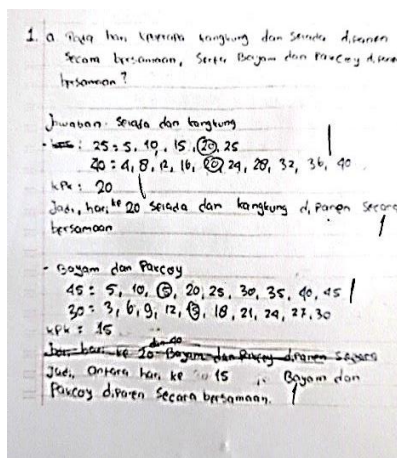 1. a. Pada hari keberapa kangkung dan Selada dipanen
Secara bersamaan, Serta Bayam dan Pakcoy dipane
bersamaan?
Jawaban. Selada dan kangkung
- 25 = 5, 10, 15, 20, 25
40 = 4, 8, 12, 16, 20, 24, 28, 32, 36, 40
KPK : 20
Jadi, hari ke 20 Selada dan kangkung di Panen Secara
bersamaan
- Bayam dan Pakcoy
45 = 5, 10, 15, 20, 25, 30, 35, 40, 45
30 = 3, 6, 9, 12, 15, 18, 21, 24, 27, 30
KPK = 15
hari ke 20 dan 40 Bayam dan Pakcoy dipanen Secara
Jadi, antara hari ke 15 Bayam dan
Pakcoy dipanen Secara bersamaan.